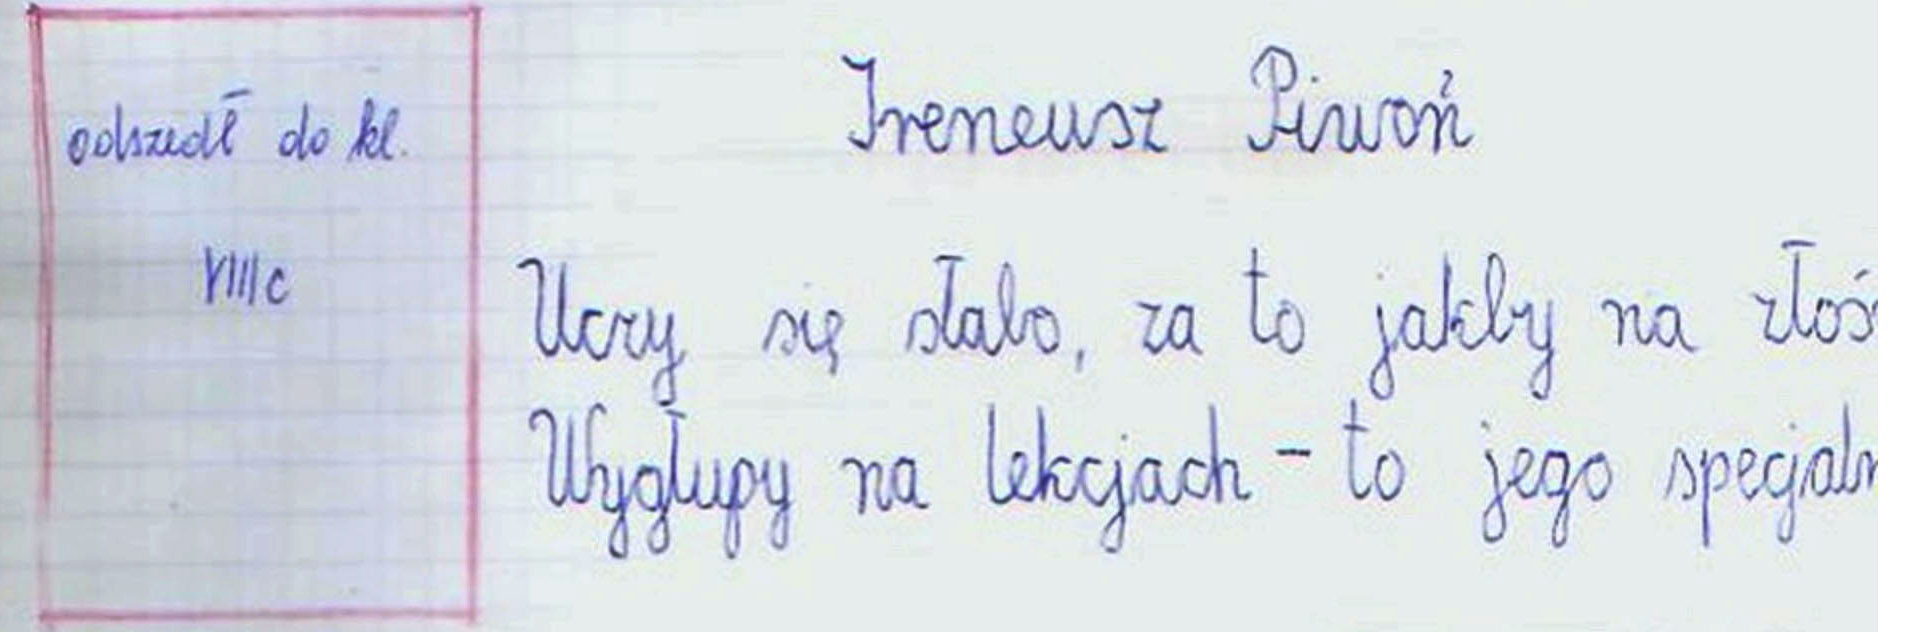 odszedł do kl.
VIIIc
Ireneusz Piwoń
Uczy się słabo, za to jakby na złoś
Wygłupy na lekcjach - to jego specjaln